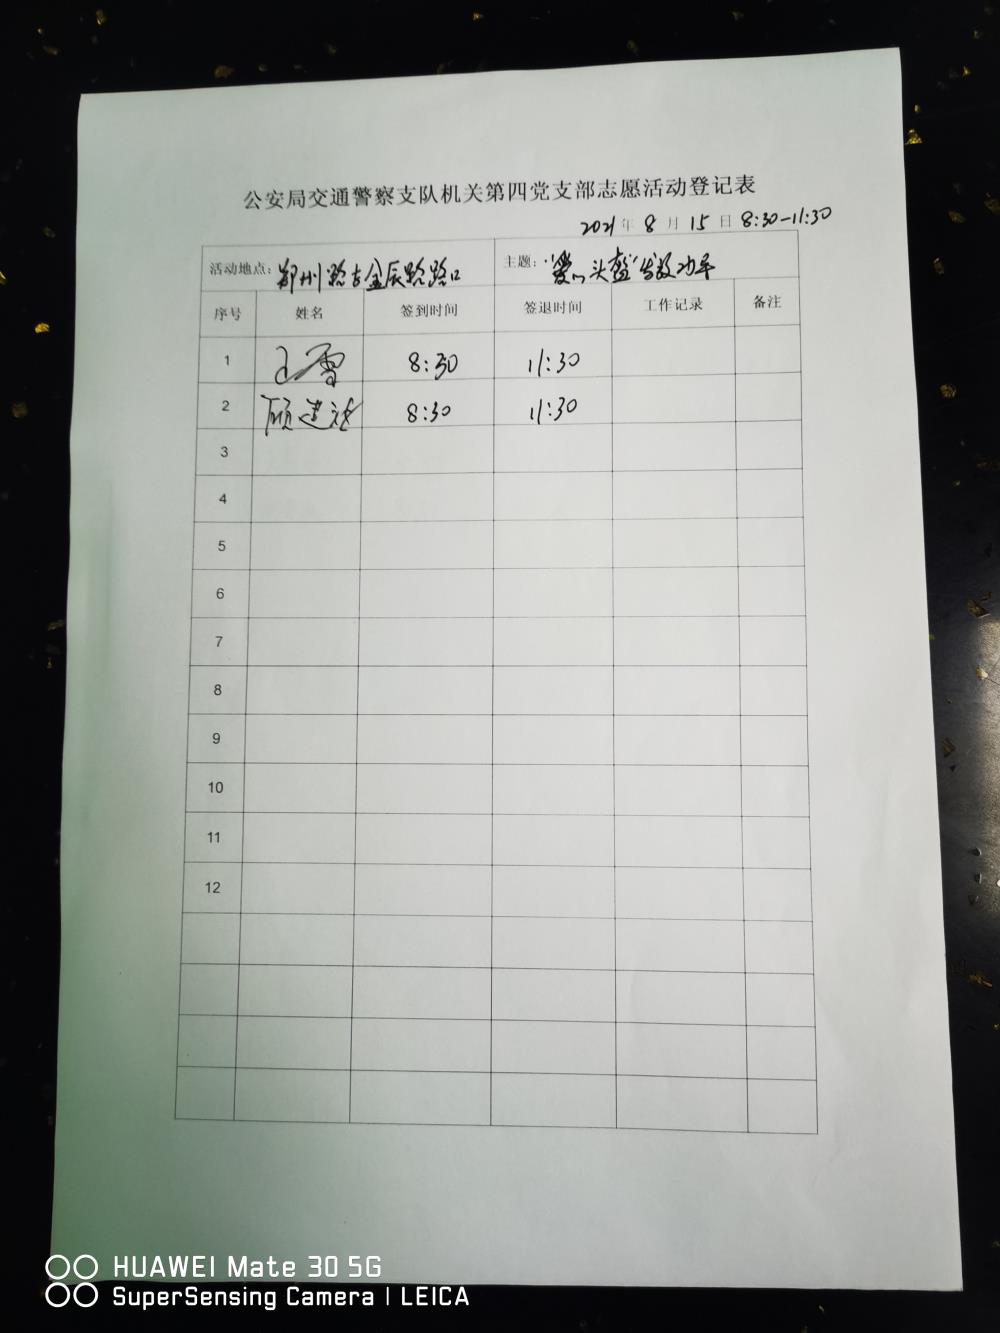 公安局交通警察支队机关第四党支部志愿活动登记表
2021年 8 月 15 日 8:30-11:30
活动地点: 郑州路与金辰路路口 主题: "爱心头盔"
序号 姓名 签到时间 签退时间 工作记录 备注
1 王雪 8:30 11:30
2 顾建 8:30 11:30
3
4
5
6
7
8
9
10
11
12
HUAWEI Mate 30 5G
SuperSensing Camera | LEICA